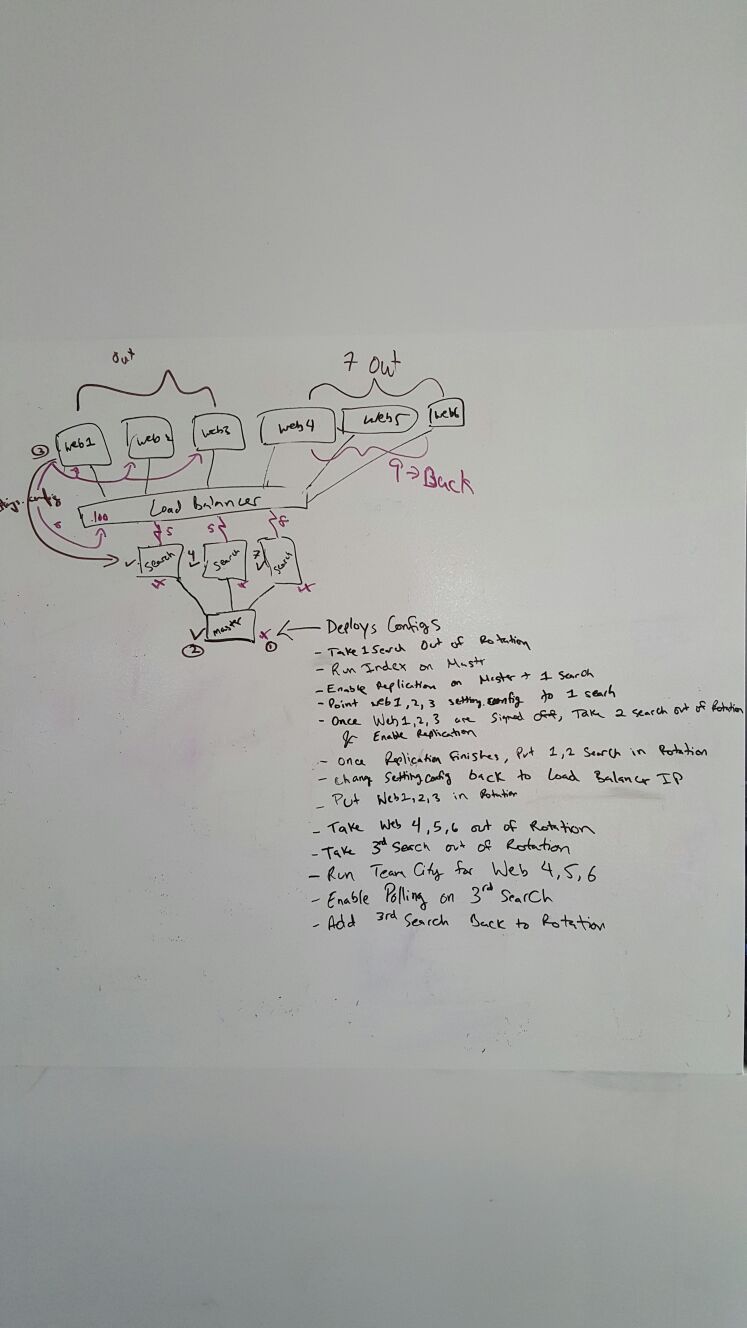 out
7 out
web1
web 2
web3
web4
web5
web6
③
9 → Back
config
Load Balancer
.100
5
5
8
Search
4
Search
7
Search
master
②
①
Deploys Configs
- Take 1 Search Out of Rotation
- Run Index on Mastr
- Enable Replication on Master + 1 Search
- Point web 1, 2, 3 setting.config to 1 search
- Once Web 1, 2, 3 are signed off, Take 2 search out of Rotation
& Enable Replication
- Once Replication Finishes, Put 1, 2 Search in Rotation
- Chang Setting config back to Load Balancer IP
- Put Web 1, 2, 3 in Rotation
- Take Web 4, 5, 6 out of Rotation
- Take 3rd Search out of Rotation
- Run Team City for Web 4, 5, 6
- Enable Polling on 3rd Search
- Add 3rd Search Back to Rotation